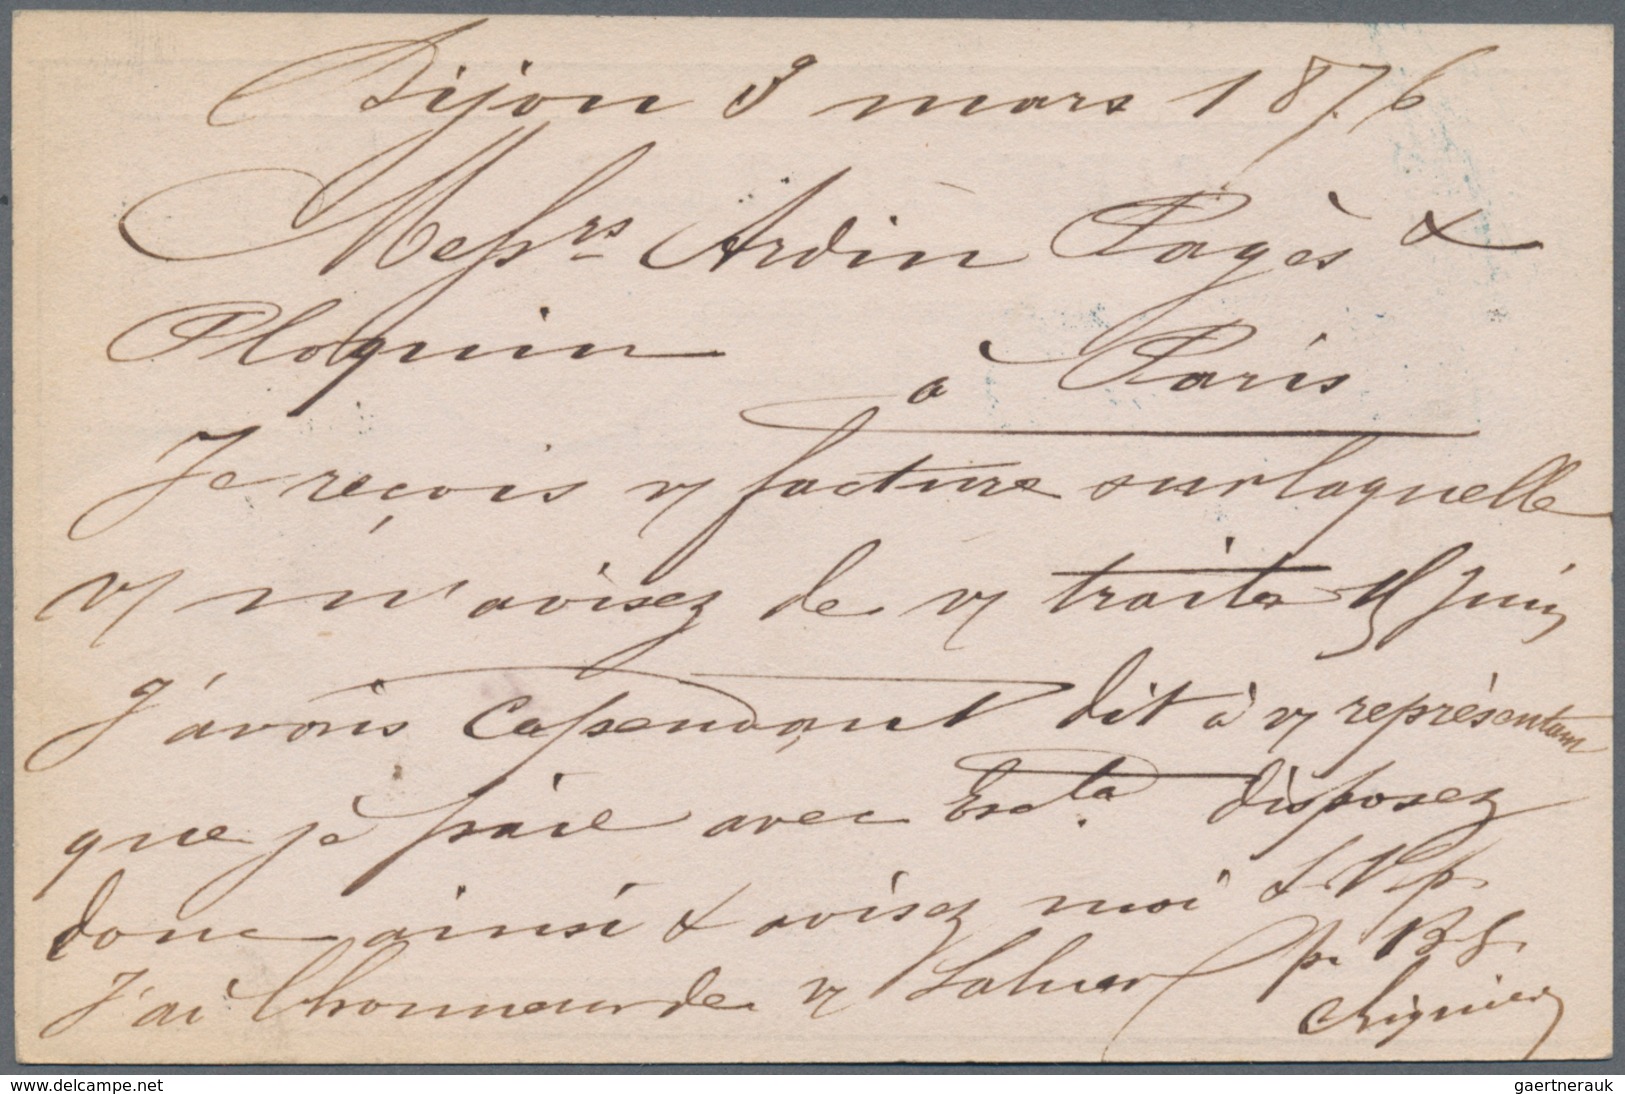 Dijon 3 mars 1876
Messrs Ardin Pagès &
Ploquin
à Paris
Je reçois v/ facture sur laquelle
v/ m'avisez de v/ traite 15 Juin
J'avais cependant dit à v/ représentan
que je paie avec Escte. disposez
donc ainsi & avisez moi S.V.p.
J'ai l'honneur de v/ Saluer
p. B S.
www.delcampe.net
gaertnerauk